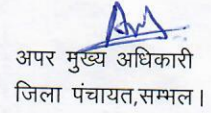 अपर मुख्य अधिकारी
जिला पंचायत,सम्भल।